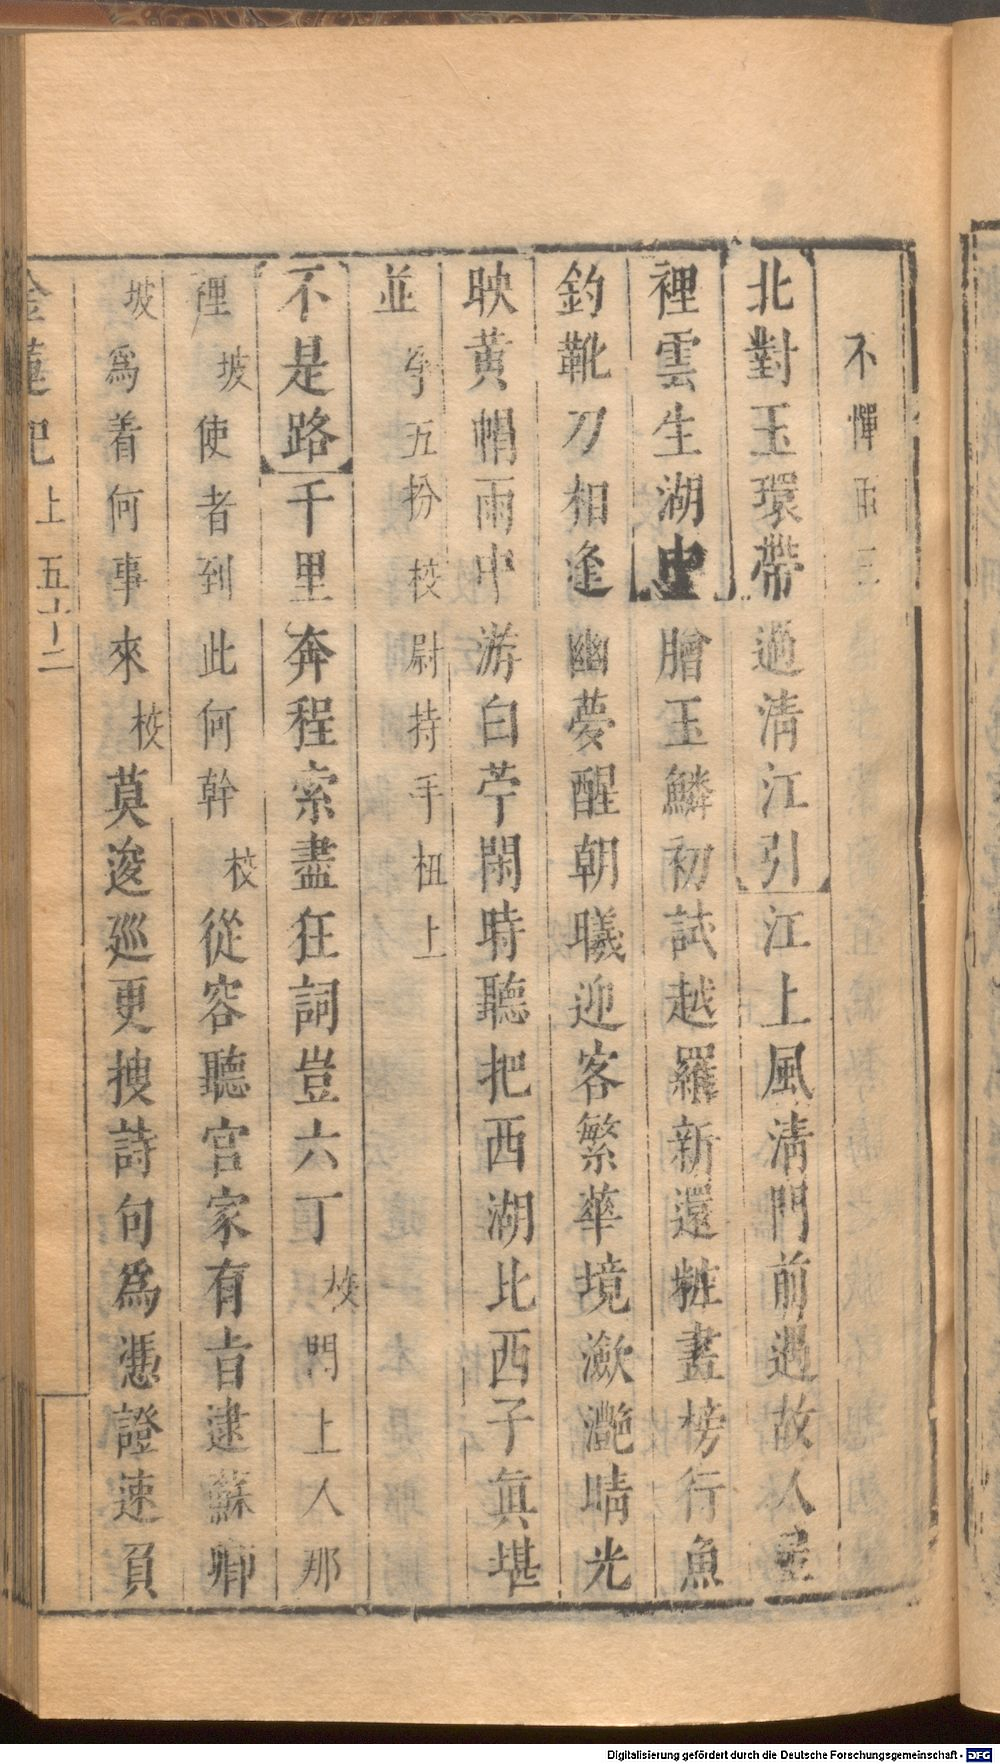 不憚
北對玉環帶過清江引江上風清門前遇故人
裡雲生湖中膾玉鱗初試越羅新還粧畫榜行魚
釣靴刀相逢幽夢醒朝曦迎客繁華境瀲灧晴光
映黃帽雨中游白苧閑時聽把西湖比西子真堪
並
五扮校尉持手杻上
不是路千里奔程索盡狂詞豈六丁校門上人那
裡坡使者到此何幹校從容聽官家有旨逮蘇卿
坡為着何事來校莫逡巡更搜詩句為憑證速負
金蓮記上五十二
Digitalisierung gefördert durch die Deutsche Forschungsgemeinschaft - DFG